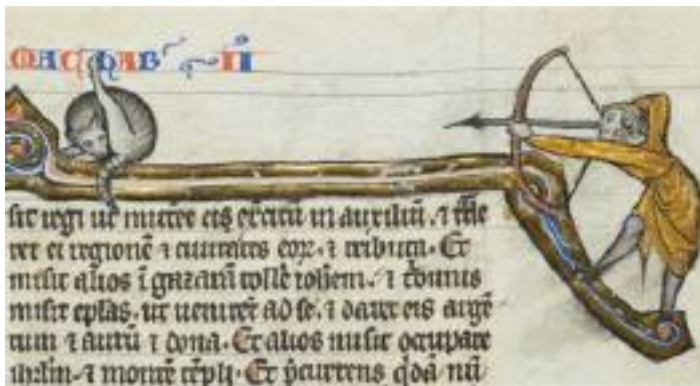 MACHAB II
sit regi ut mitteret eis exercitū in auxiliū. ⁊
ret ei regionē ⁊ ciuitates eoꝝ. ⁊ tributa. Et
misit alios ī gazarā tolle iohem. ⁊ tbunis
misit eplas. ut ueniret ad se. ⁊ daret eis argē
tum ⁊ aurū ⁊ dona. Et alios misit occupare
ihrlm. ⁊ montē tēpli. Et p̄currens qdā nū